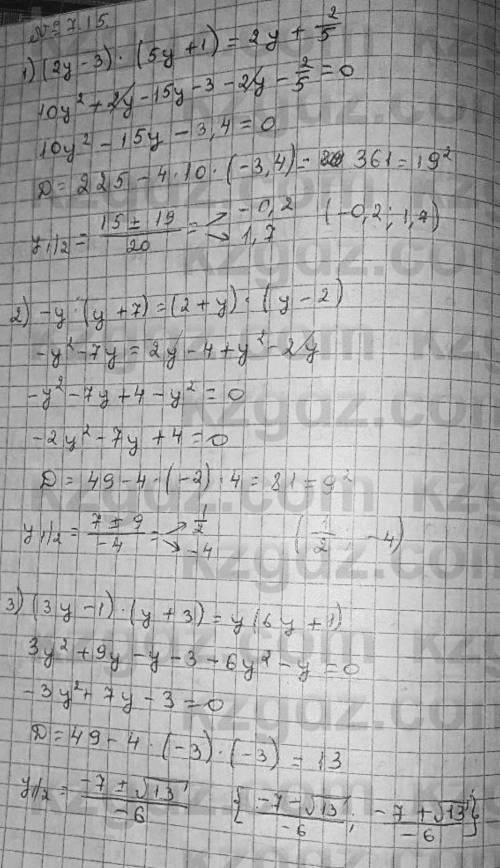 № 715
1) (2y - 3) · (5y + 1) = 2y + 2/5
10y² + 2y - 15y - 3 - 2y - 2/5 = 0
10y² - 15y - 3,4 = 0
D = 225 - 4 · 10 · (-3,4) = 361 = 19²
y₁/₂ = (15 ± 19)/20 = → -0,2 → 1,7 (-0,2; 1,7)
2) -y · (y + 7) = (2 + y) · (y - 2)
-y² - 7y = 2y - 4 + y² - 2y
-y² - 7y + 4 - y² = 0
-2y² - 7y + 4 = 0
D = 49 - 4 · (-2) · 4 = 81 = 9²
y₁/₂ = (7 ± 9)/-4 = → 1/2 → -4 (1/2 -4)
3) (3y - 1) · (y + 3) = y(6y + 1)
3y² + 9y - y - 3 - 6y² - y = 0
-3y² + 7y - 3 = 0
D = 49 - 4 · (-3) · (-3) = 13
y₁/₂ = (-7 ± √13)/-6 {(-7 - √13)/-6; (-7 + √13)/-6}
kzgdz.com